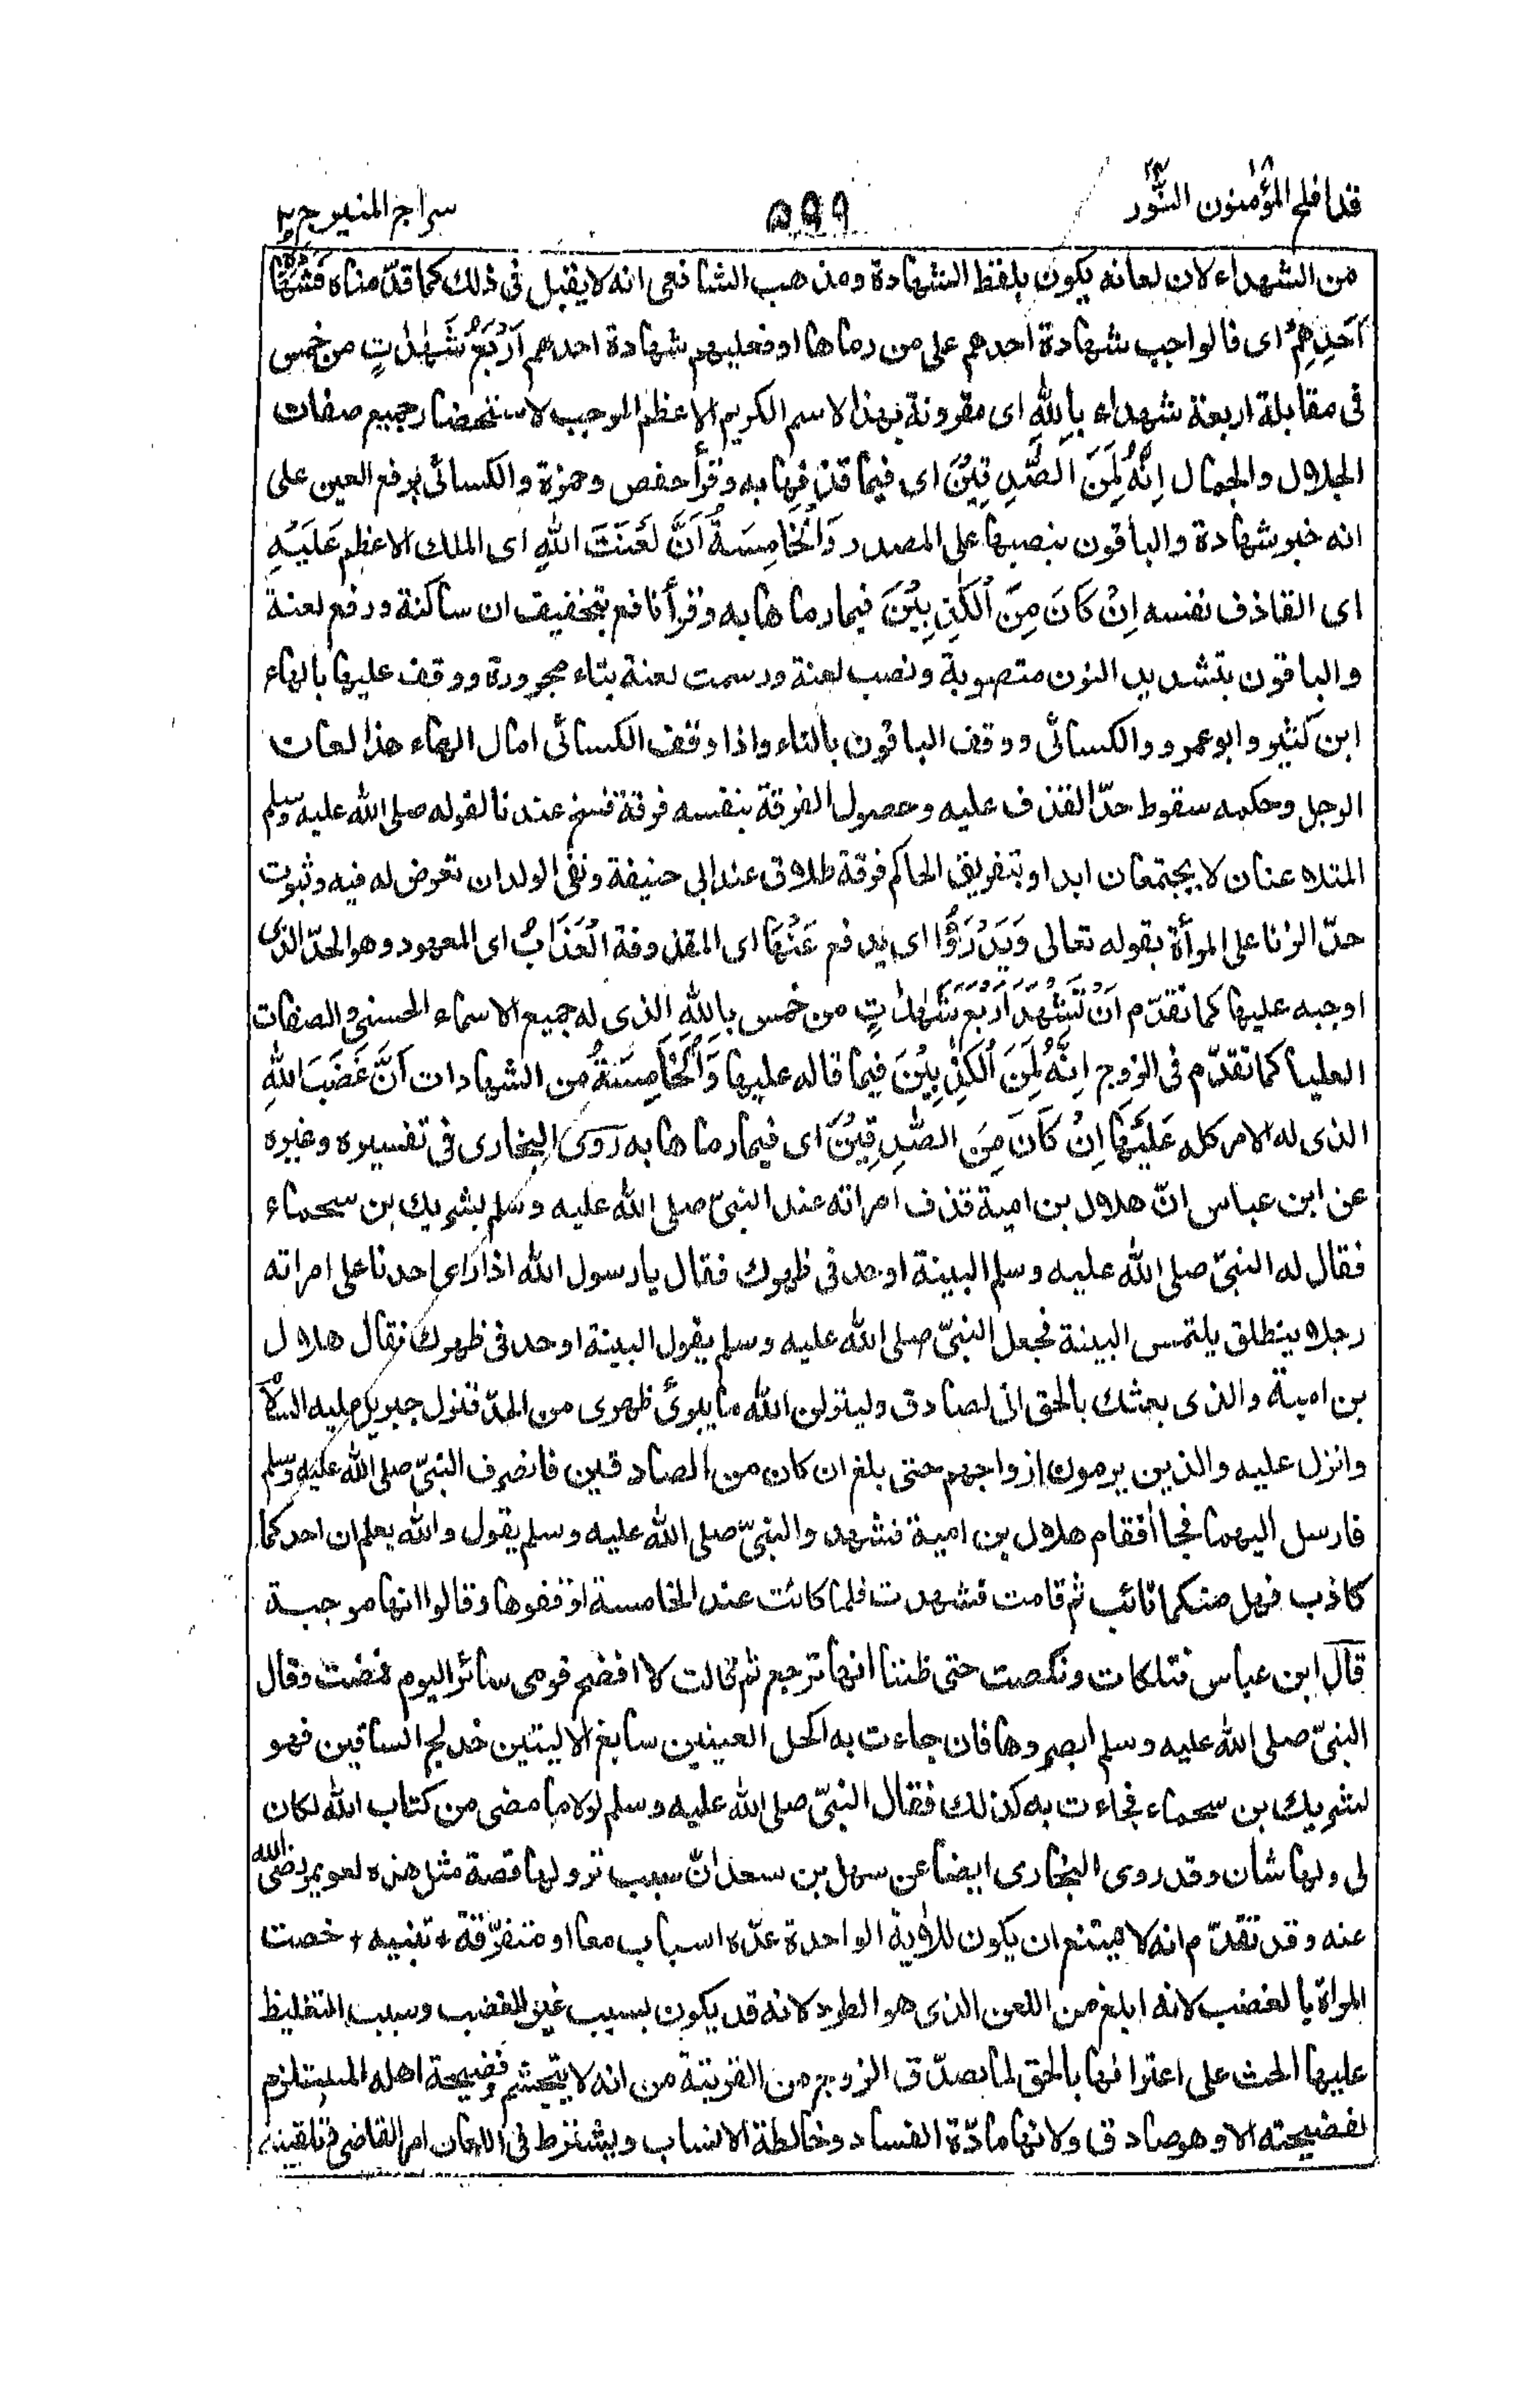 قد افلح المؤمنون ١٨ النّور ٢٤
٥٩٩
سراج المنير ج ٢
من الشهداء لان لعانه يكون بلفظ الشهادة ومذهب الشافعى انه لا يقبل فى ذلك كما قدّمناه فَشَهَادَةُ
اَحَدِهِمْ اى فالواجب شهادة احدهم على من رماها او فعليهم شهادة احدهم اَرْبَعُ شَهٰدٰتٍ من خمس
فى مقابلة اربعة شهداء بِاللّٰهِ اى مقرونة بهذا الاسم الكريم الاعظم الموجب لاستحضار جميع صفات
الجلال والجمال اِنَّهُ لَمِنَ الصّٰدِقِيْنَ اى فيما قذفها به وقرأ حفص وحمزة والكسائى برفع العين على
انه خبر شهادة والباقون بنصبها على المصدر وَالْخَامِسَةُ اَنَّ لَعْنَتَ اللّٰهِ اى الملك الاعظم عَلَيْهِ
اى القاذف نفسه اِنْ كَانَ مِنَ الْكٰذِبِيْنَ فيما رماها به وقرأ نافع بتخفيف ان ساكنة ورفع لعنة
والباقون بتشديد النون منصوبة ونصب لعنة ورسمت لعنة بتاء مجرورة ووقف عليها بالهاء
ابن كثير وابو عمرو والكسائى ووقف الباقون بالتاء واذا وقف الكسائى امال الهاء هذا لعان
الرجل وحكمه سقوط حدّ القذف عليه وحصول الفرقة بنفسه فرقة فسخ عندنا لقوله صلى الله عليه وسلم
المتلاعنان لا يجتمعان ابدا وبتفريق الحاكم فرقة طلاق عند ابى حنيفة ونفى الولد ان تعرض له فيه وثبوت
حدّ الزنا على المرأة بقوله تعالى وَيَدْرَؤُا اى يدفع عَنْهَا اى المقذوفة الْعَذَابَ اى المعهود وهو الحدّ الذى
اوجبه عليها كما تقدّم اَنْ تَشْهَدَ اَرْبَعَ شَهٰدٰتٍ من خمس بِاللّٰهِ الذى له جميع الاسماء الحسنى والصفات
العليا كما تقدّم فى الزوج اِنَّهُ لَمِنَ الْكٰذِبِيْنَ فيما قاله عليها وَالْخَامِسَةُ من الشهادات اَنَّ غَضَبَ اللّٰهِ
الذى له الامر كله عَلَيْهَا اِنْ كَانَ مِنَ الصّٰدِقِيْنَ اى فيما رماها به روى البخارى فى تفسيره وغيره
عن ابن عباس انّ هلال بن امية قذف امراته عند النبىّ صلى الله عليه وسلم بشريك بن سحماء
فقال له النبىّ صلى الله عليه وسلم البينة او حد فى ظهرك فقال يا رسول الله اذا راى احدنا على امراته
رجلا ينطلق يلتمس البينة فجعل النبىّ صلى الله عليه وسلم يقول البينة او حد فى ظهرك فقال هلال
بن امية والذى بعثك بالحق انى لصادق ولينزلن الله ما يبرئ ظهرى من الحدّ فنزل جبريل عليه السلام
وانزل عليه والذين يرمون ازواجهم حتى بلغ ان كان من الصادقين فانصرف النبىّ صلى الله عليه وسلم
فارسل اليهما فجاا فقام هلال بن امية فشهد والنبىّ صلى الله عليه وسلم يقول والله يعلم ان احدكما
كاذب فهل منكما تائب ثم قامت فشهدت فلما كانت عند الخامسة اوقفوها وقالوا انها موجبة
قال ابن عباس فتلكات ونكصت حتى ظننا انها ترجع ثم قالت لا افضح قومى سائر اليوم فمضت وقال
النبىّ صلى الله عليه وسلم ابصروها فان جاءت به اكحل العينين سابغ الاليتين خدلج الساقين فهو
لشريك بن سحماء فجاءت به كذلك فقال النبىّ صلى الله عليه وسلم لولا ما مضى من كتاب الله لكان
لى ولها شان وقد روى البخارى ايضا عن سهل بن سعد انّ سبب نزولها قصة مثل هذه لعويمر رضى الله
عنه وقد تقدّم انه لا يمتنع ان يكون للاٰية الواحدة عدّه اسباب معا او متفرّقة + تنبيه + خصت
المراة بالغضب لانه ابلغ من اللعن الذى هو الطرد لانه قد يكون بسبب غير الغضب وسبب التغليظ
عليها الحث على اعترافها بالحق لما تصدّق الزوج من القرينة من انه لا يتجشم فضيحة اهله المستلزم
لفضيحته الا وهو صادق ولانها مادّة الفساد وخالطة الانساب ويشترط فى اللعان امر القاضى وتلقينه